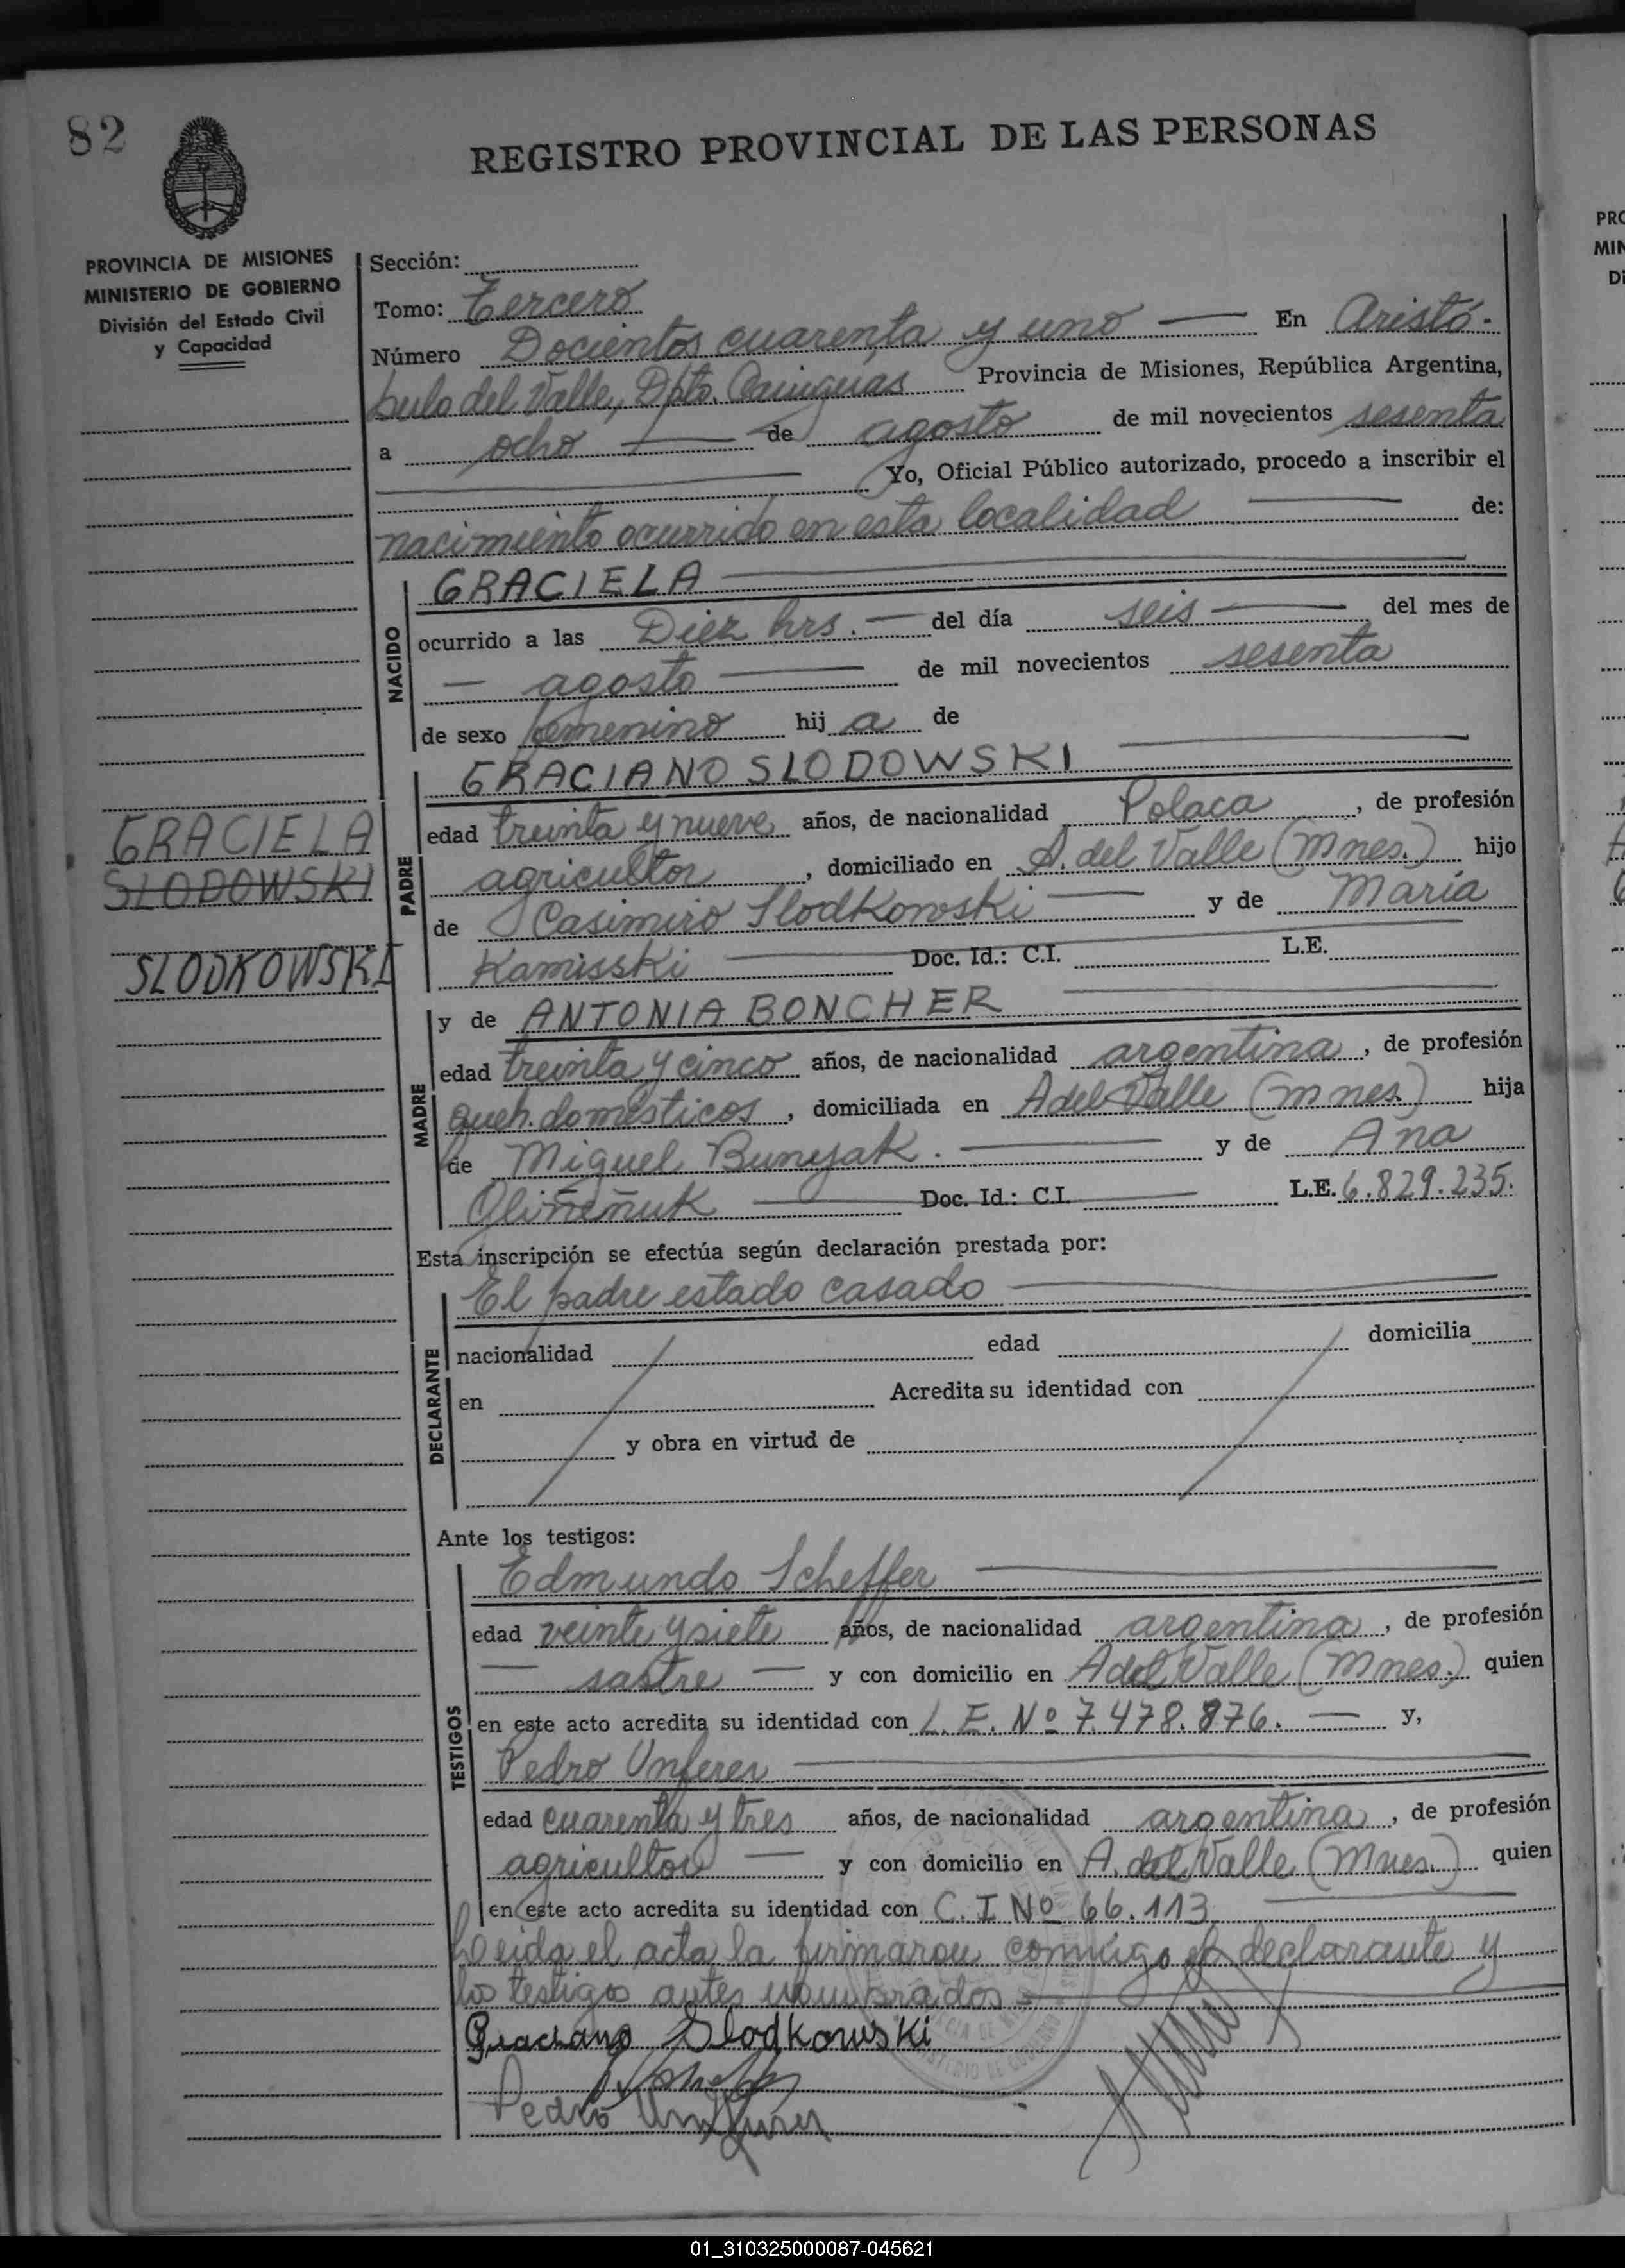 82
REGISTRO PROVINCIAL DE LAS PERSONAS
PROVINCIA DE MISIONES
MINISTERIO DE GOBIERNO
División del Estado Civil
y Capacidad
Sección:
Tomo: Tercero
Número Docientos cuarenta y uno — En Aristó-
bulo del Valle, Dpto. Cainguás Provincia de Misiones, República Argentina,
a ocho — de agosto de mil novecientos sesenta
— Yo, Oficial Público autorizado, procedo a inscribir el
nacimiento ocurrido en esta localidad — de:
NACIDO
GRACIELA —
ocurrido a las Diez hrs. — del día seis — del mes de
— agosto — de mil novecientos sesenta
de sexo femenino hij a de
GRACIELA
SLODOWSKI
SLODKOWSKI
PADRE
GRACIANO SLODOWSKI —
edad treinta y nueve años, de nacionalidad Polaca, de profesión
agricultor, domiciliado en A. del Valle (Mnes.) hijo
de Casimiro Slodkowski — y de María
Kamisski — Doc. Id.: C.I. L.E.
MADRE
y de ANTONIA BONCHER —
edad treinta y cinco años, de nacionalidad argentina, de profesión
queh. domésticos, domiciliada en A del Valle (mnes.) hija
de Miguel Bunyak. — y de Ana
Oliñeñuk — Doc. Id.: C.I. — L.E. 6.829.235.
Esta inscripción se efectúa según declaración prestada por:
DECLARANTE
El padre estado casado —
nacionalidad edad domicilia
en Acredita su identidad con
y obra en virtud de
Ante los testigos:
TESTIGOS
Edmundo Scheffer —
edad veinte y siete años, de nacionalidad argentina, de profesión
— sastre — y con domicilio en A del Valle (Mnes.) quien
en este acto acredita su identidad con L.E. Nº 7.478.876. — y,
Pedro Unferer —
edad cuarenta y tres años, de nacionalidad argentina, de profesión
agricultor — y con domicilio en A. del Valle (Mnes.) quien
en este acto acredita su identidad con C.I Nº 66.113 —
Leida el acta la firmaron conmigo el declarante y
los testigos antes nombrados —
Graciano Slodkowski
Pedro
PRO
MIN
01_310325000087-045621